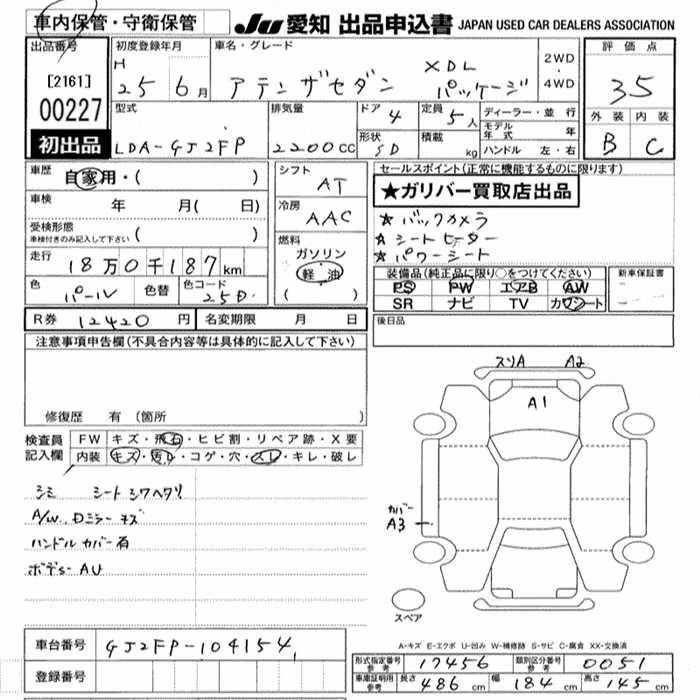 車内保管・守衛保管
JU 愛知 出品申込書 JAPAN USED CAR DEALERS ASSOCIATION
出品番号 初度登録年月 車名・グレード 評価点
[2161] H 25 6月 アテンザセダン XDL パッケージ 2WD・4WD 35
00227 型式 排気量 ドア 4 定員 5人 ディーラー・並行 外装 内装
初出品 LDA-GJ2FP 2200cc 形状 SD 積載 kg モデル年式 年 B C
ハンドル 左・右
車歴 自家用・( ) シフト AT セールスポイント(正常に機能するものに限ります)
★ガリバー買取店出品
車検 年 月( 日) 冷房 AAC ★ バックカメラ
受検形態 ★ シートヒーター
車検付きのみ記入して下さい ( ) 燃料 ★ パワーシート
走行 18万0千187km ガソリン 装備品(純正品に限り○をつけてください) 新車保証書
軽・油 PS PW エアB AW
色 パール 色替 色コード 25D ( ) SR ナビ TV カワシート
R券 12420円 名変期限 月 日 後日品
注意事項申告欄(不具合内容等は具体的に記入して下さい)
修復歴 有 (箇所 )
スリA A2
A1
カバー
A3
スペア
検査員記入欄 FW キズ・飛石・ヒビ割・リペア跡・X要
内装 キズ・汚れ・コゲ・穴・スレ・キレ・破レ
シミ シートシワヘタリ
A/W、Dミラーキズ
ハンドルカバー有
ボデー AU
A-キズ E-エクボ U-凹み W-補修跡 S-サビ C-腐食 XX-交換済
車台番号 GJ2FP-104154
形式指定番号 参考 17456 類別区分番号 参考 0051
登録番号
車庫証明用 参考 長さ 486cm 幅 184cm 高さ 145cm